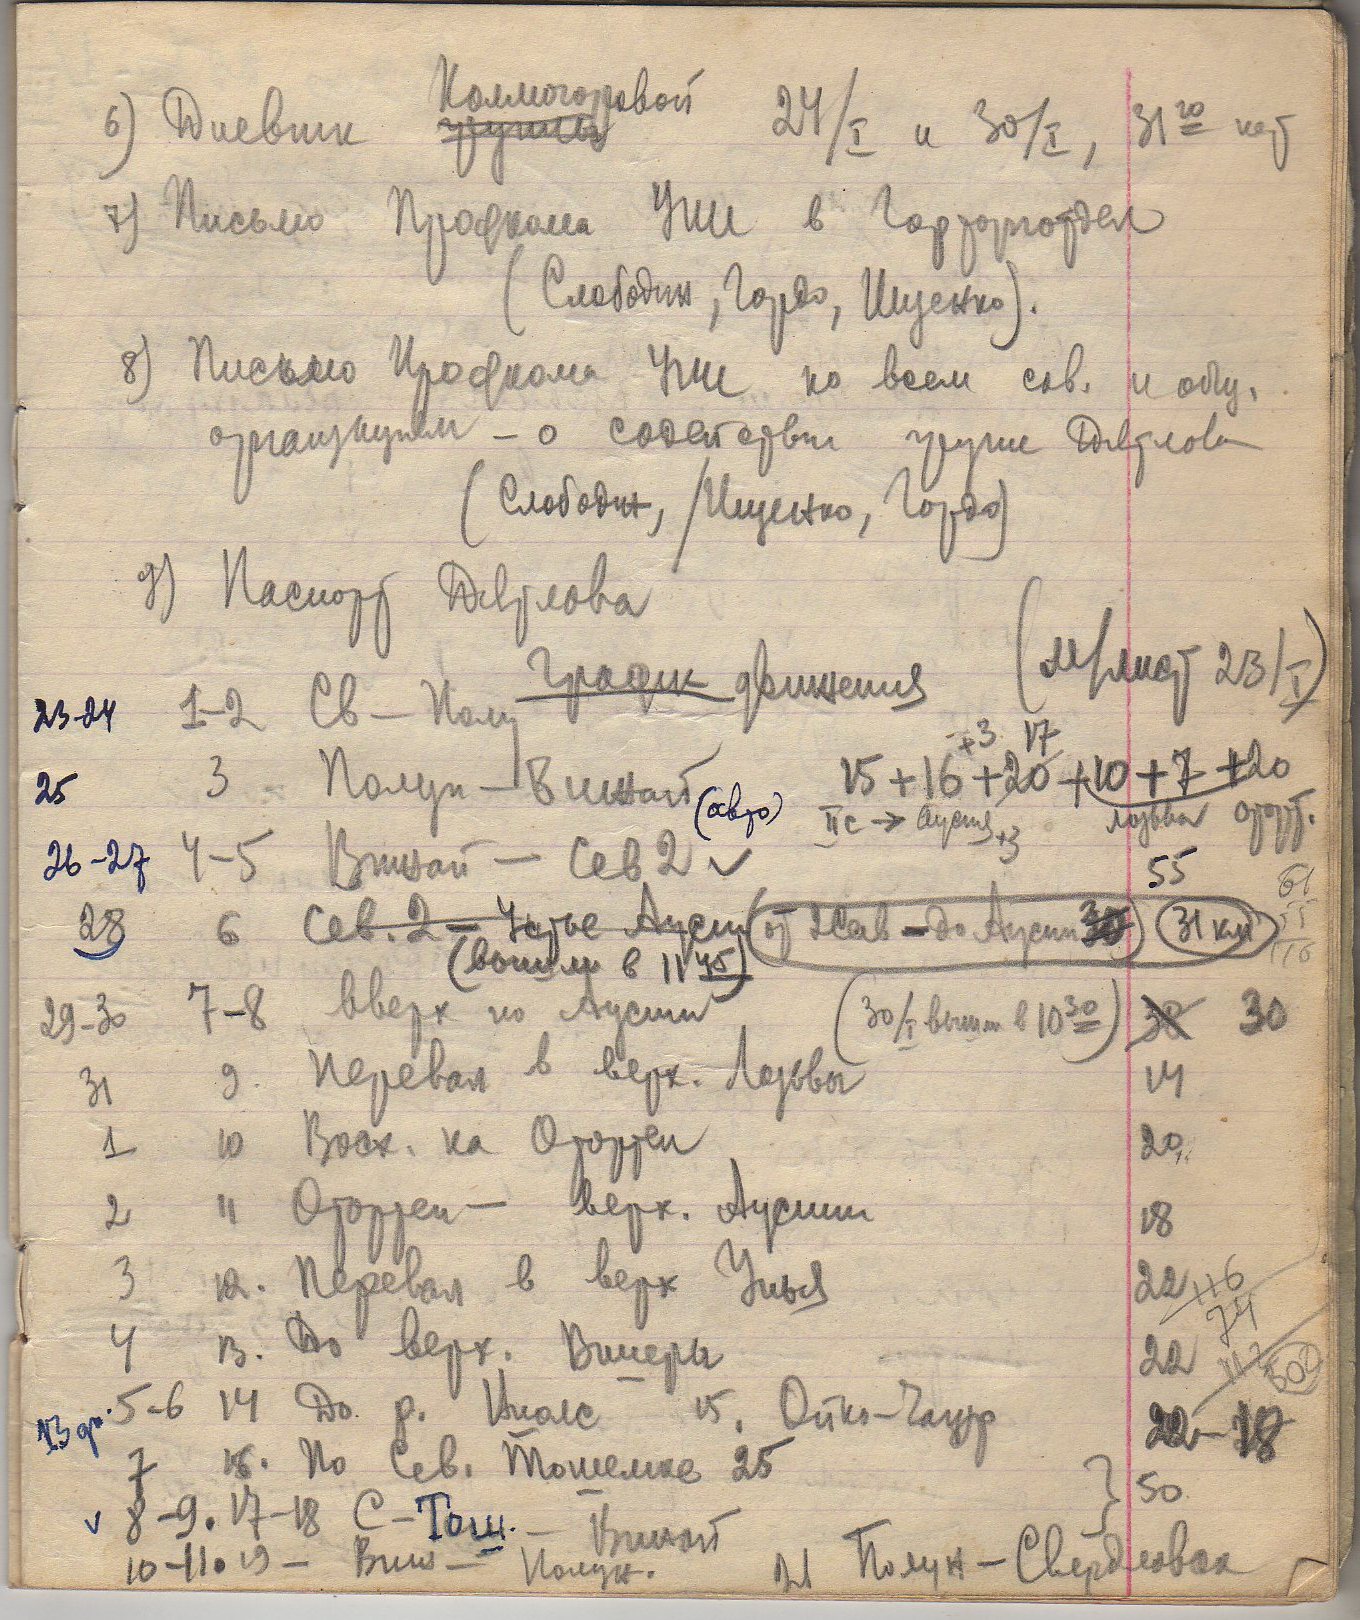 6) Дневник Колмогоровой группы 24/I и 30/I, 31го нет
7) Письмо Профкома УПИ в Гор
(Слободин, Гордо, Ищенко).
8) Письмо Профкома УПИ ко всем сов. и общ.
организациям – о содействии группе Дятлова
(Слободин, Ищенко, Гордо)
9) Паспорт Дятлова
График движения (М/лист 23/I)
23-24 1-2 Св – Полу
25 3 Полун – Вижай 15 + 16 + 20 + 10 + 7 + 20
+3 17
(авто) IIс → Ауспия +3 Лозьва Оторт.
26-27 4-5 Вижай – Сев 2 ✓ 55
28 6 Сев. 2 – Устье Ауспи (от 2Сев – до Ауспии 30) 31 км
61 55 116
(вышли в 11 45)
29-30 7-8 вверх по Ауспии (30/I вышли в 10 30) 30 30
31 9. Перевал в верх. Лозьвы 14
1 10 Восх. на Отортен 20
2 11 Отортен – верх. Ауспии 18
3 12. Перевал в верх Унья 22
116
74
4 13. До верх. Вишеры 22
300
5-6 14 До р. Ниолс 15. Ойко-Чакур 22 – 18
13 дн.
7 16. По Сев. Тошемке 25
50
✓ 8-9. 17-18 С – Тош. – Вижай
10-11. 19 – Виж – Полун. 21 Полун – Свердловск